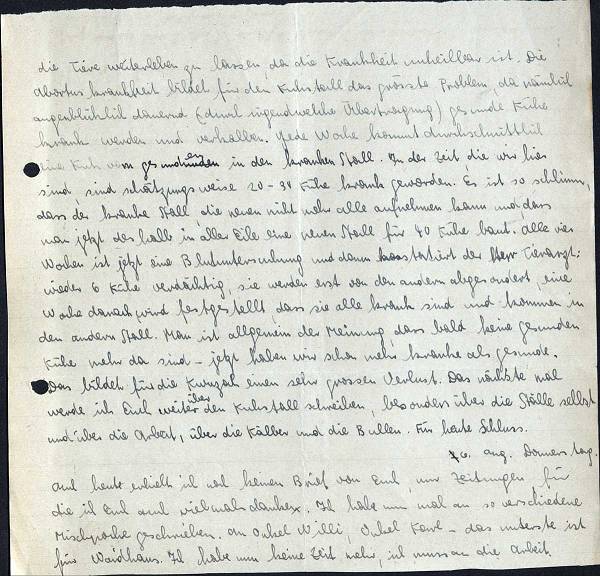 die Tiere weiterleben zu lassen, da die Krankheit unheilbar ist. Die
Abortus krankheit bildet für den Kuhstall das grösste Problem, da nämlich
augenblicklich dauernd (durch irgendwelche Übertragung) gesunde Kühe
krank werden und verkalben. Jede Woche kommt durchschnittlich
eine Kuh vom gesunden in den kranken Stall. In der Zeit, die wir hier
sind, sind schätzungsweise 20-30 Kühe krank geworden. Es ist so schlimm,
dass der kranke Stall die neuen nicht mehr alle aufnehmen kann und dass
man jetzt deshalb in aller Eile einen neuen Stall für 40 Kühe baut. Alle vier
Wochen ist jetzt eine Blutuntersuchung und dann konstatiert der Herr Tierarzt:
wieder 6 Kühe verdächtig, sie werden erst von den andern abgesondert, eine
Woche danach wird festgestellt dass sie alle krank sind und kommen in
den andern Stall. Man ist allgemein der Meinung, dass bald keine gesunden
Kühe mehr da sind - jetzt haben wir schon mehr kranke als gesunde.
Das bildet für die Kwuzah einen sehr grossen Verlust. Das nächste mal
werde ich Euch weiter über den Kuhstall schreiben, besonders über die Ställe selbst
und über die Arbeit, über die Kälber und die Bullen. Für heute Schluss.
Aug. Donnerstag.
Auch heute erhielt ich noch keinen Brief von Euch, nur Zeitungen für
die ich Euch auch vielmals danke. Ich habe nun mal an so verschiedene
Mischpoche geschrieben. An Onkel Willi, Onkel Karl - das unterste ist
für Waidhaus. Ich habe nun keine Zeit mehr, ich muss an die Arbeit.